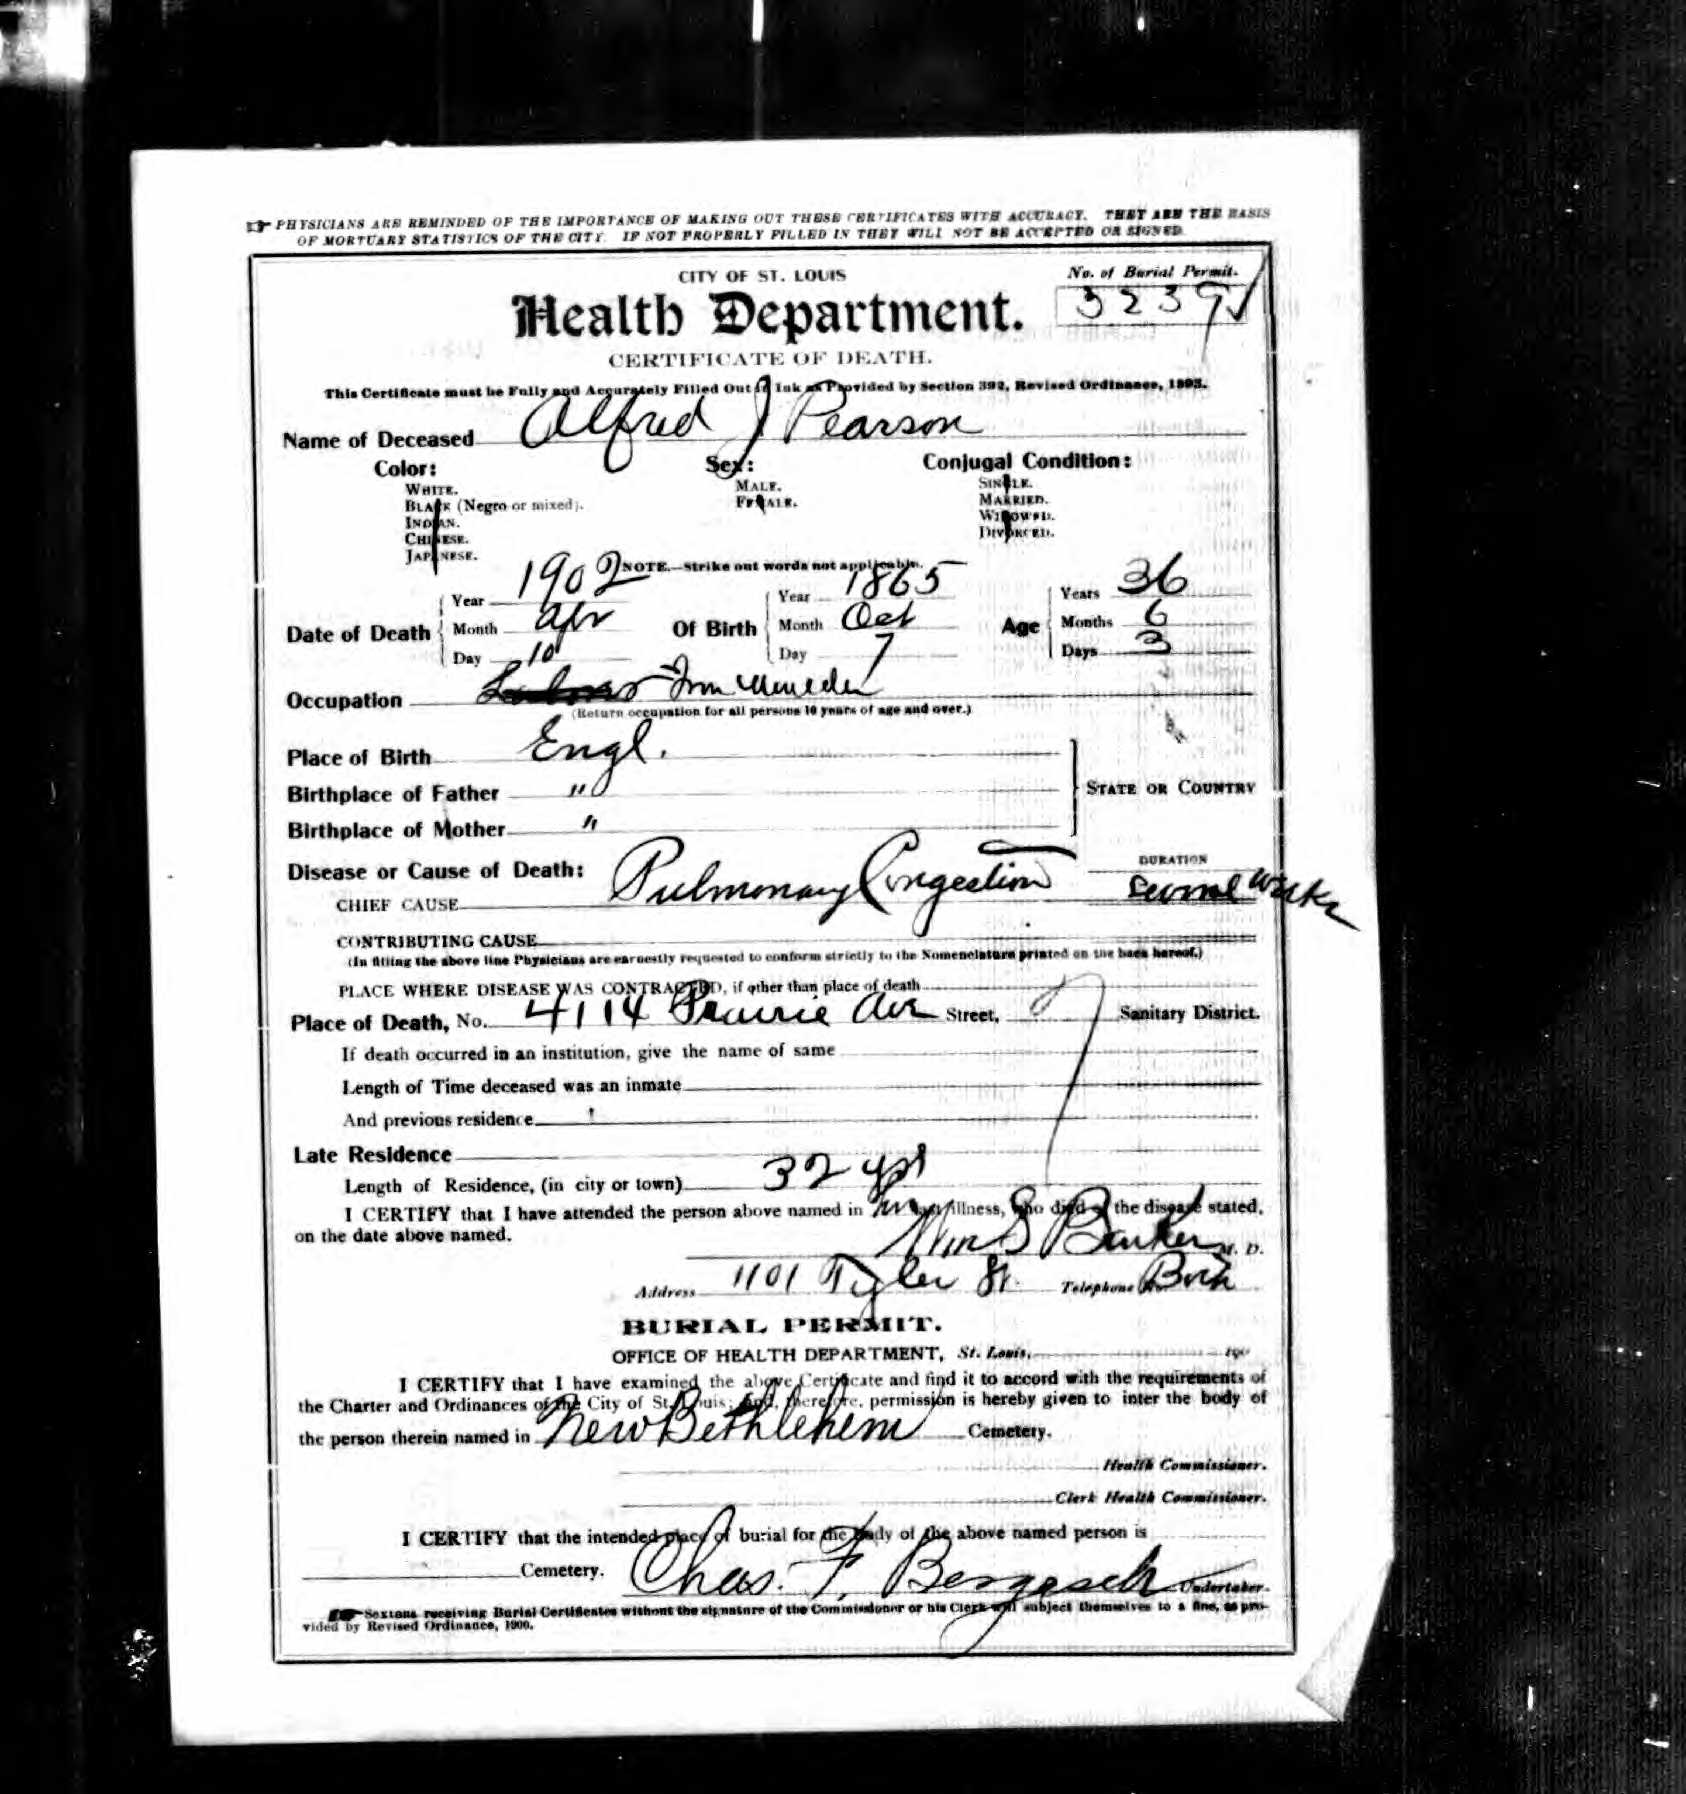 PHYSICIANS ARE REMINDED OF THE IMPORTANCE OF MAKING OUT THESE CERTIFICATES WITH ACCURACY. THEY ARE THE BASIS
OF MORTUARY STATISTICS OF THE CITY. IF NOT PROPERLY FILLED IN THEY WILL NOT BE ACCEPTED OR SIGNED.
CITY OF ST. LOUIS
No. of Burial Permit.
Health Department.
3239
CERTIFICATE OF DEATH.
This Certificate must be Fully and Accurately Filled Out in Ink as Provided by Section 392, Revised Ordinance, 1893.
Name of Deceased Alfred J Pearson
Color: Sex: Conjugal Condition:
WHITE. MALE. SINGLE.
BLACK (Negro or mixed). FEMALE. MARRIED.
INDIAN. WIDOWED.
CHINESE. DIVORCED.
JAPANESE.
NOTE.—Strike out words not applicable.
Year 1902 Year 1865 Years 36
Date of Death Month Apr Of Birth Month Oct Age Months 6
Day 10 Day 7 Days 3
Occupation Labor
(Return occupation for all persons 10 years of age and over.)
Place of Birth Engl.
Birthplace of Father "
STATE OR COUNTRY
Birthplace of Mother "
DURATION
Disease or Cause of Death:
CHIEF CAUSE Pulmonary Congestion Several Weeks
CONTRIBUTING CAUSE
(In filling the above line Physicians are earnestly requested to conform strictly to the Nomenclature printed on the back hereof.)
PLACE WHERE DISEASE WAS CONTRACTED, if other than place of death
Place of Death, No. 4114 Prairie Ave Street, Sanitary District.
If death occurred in an institution, give the name of same
Length of Time deceased was an inmate
And previous residence
Late Residence
Length of Residence, (in city or town) 32 yrs
I CERTIFY that I have attended the person above named in last illness, who died of the disease stated,
on the date above named.
Wm S Barker M. D.
Address 1101 Tyler St. Telephone Both
BURIAL PERMIT.
OFFICE OF HEALTH DEPARTMENT, St. Louis, 190
I CERTIFY that I have examined the above Certificate and find it to accord with the requirements of
the Charter and Ordinances of the City of St. Louis; and, therefore, permission is hereby given to inter the body of
the person therein named in New Bethlehem Cemetery.
Health Commissioner.
Clerk Health Commissioner.
I CERTIFY that the intended place of burial for the body of the above named person is
Cemetery. Chas. F. Bergesch Undertaker.
Sextons receiving Burial Certificates without the signature of the Commissioner or his Clerk will subject themselves to a fine, as pro-
vided by Revised Ordinance, 1900.